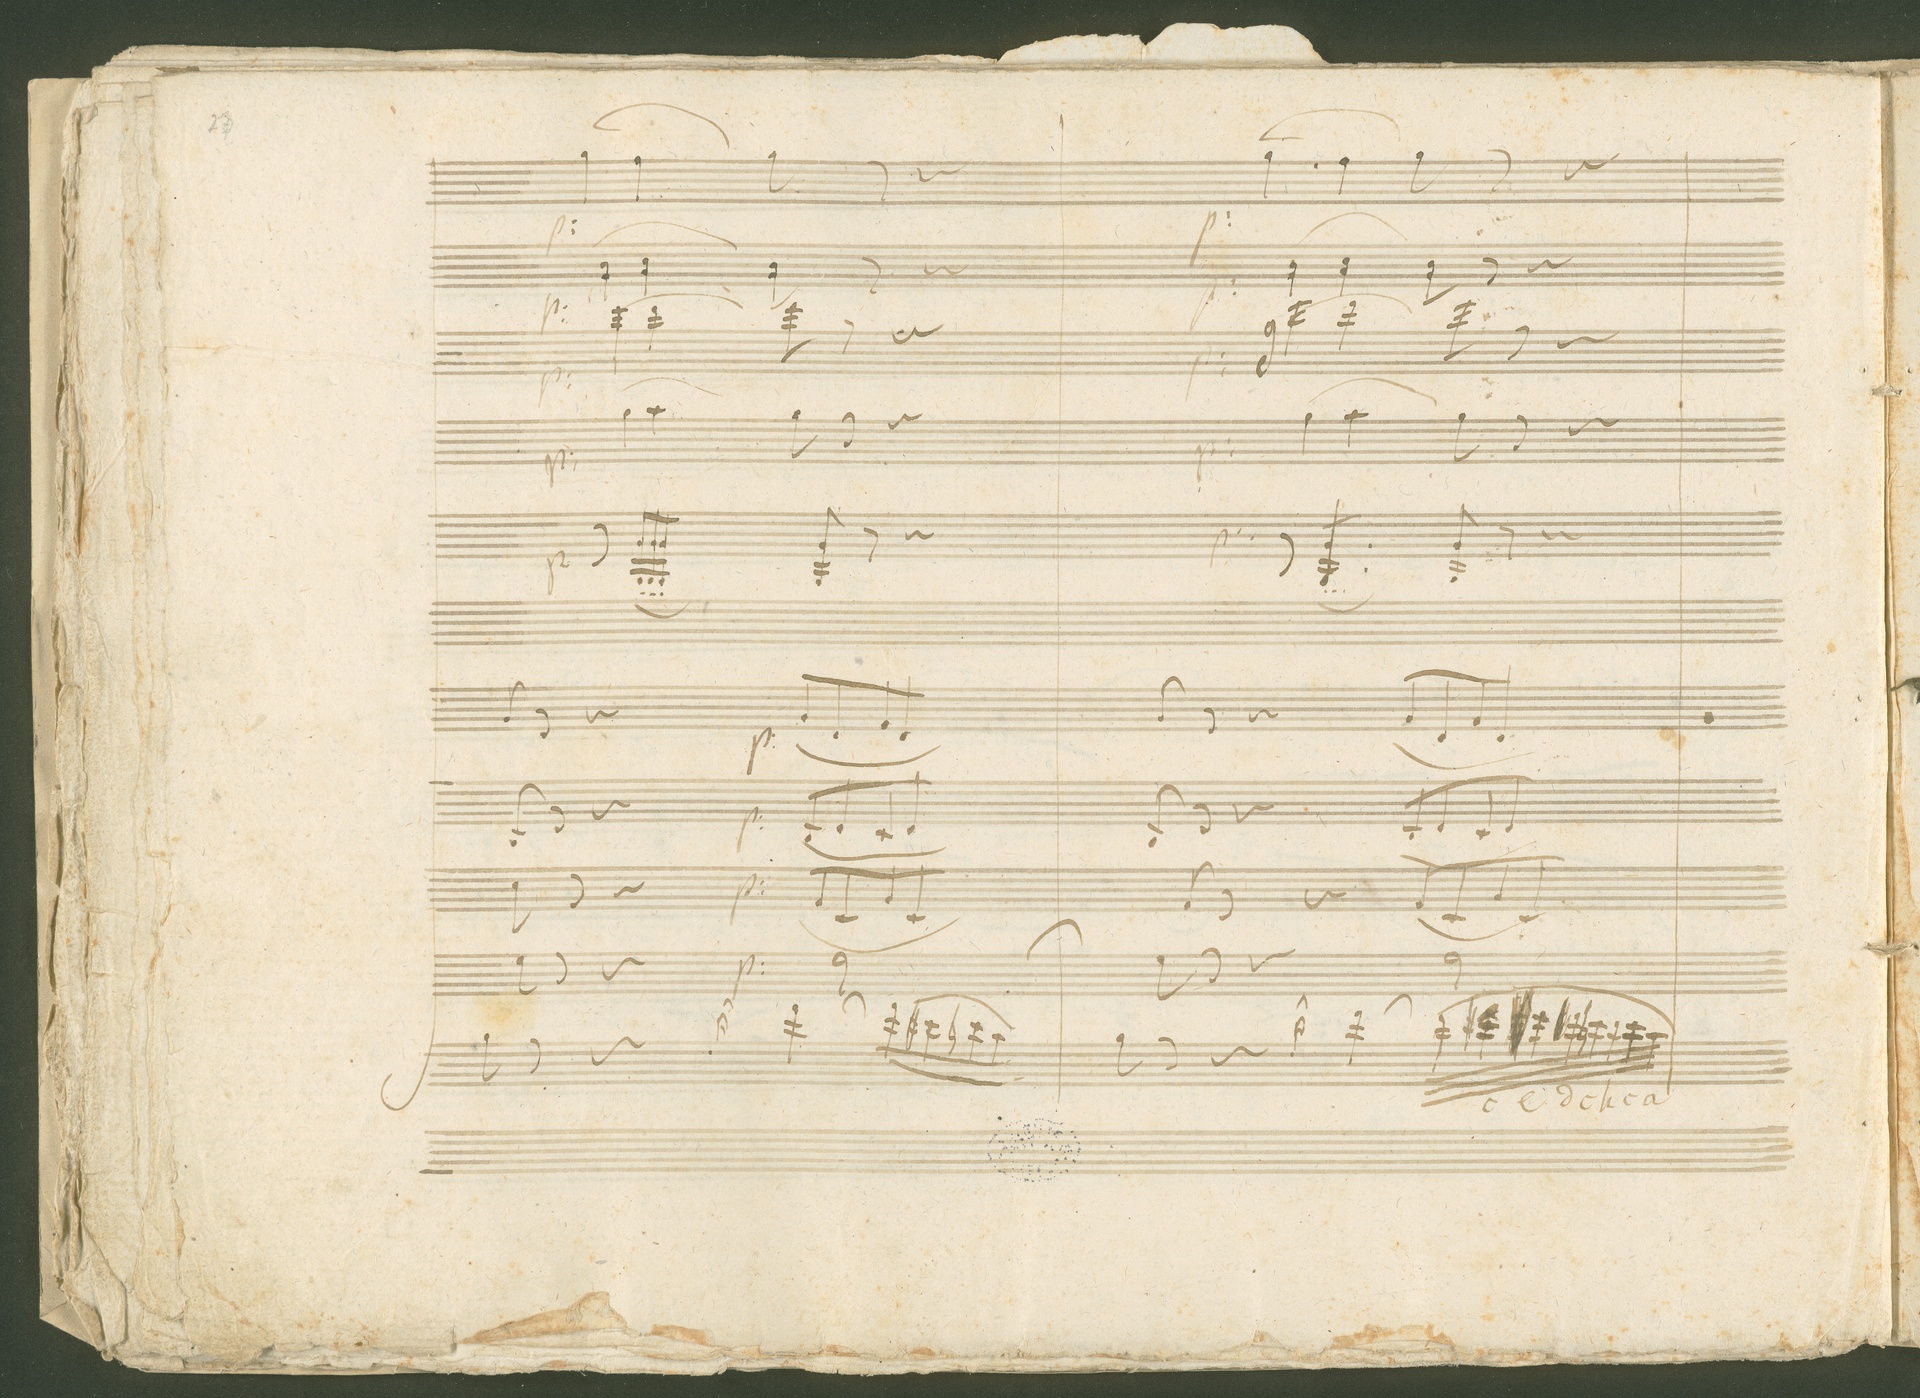 27
p: p:
p: p:
p: p:
p: p:
p p:
p:
p:
p:
p:
c e d c h c a